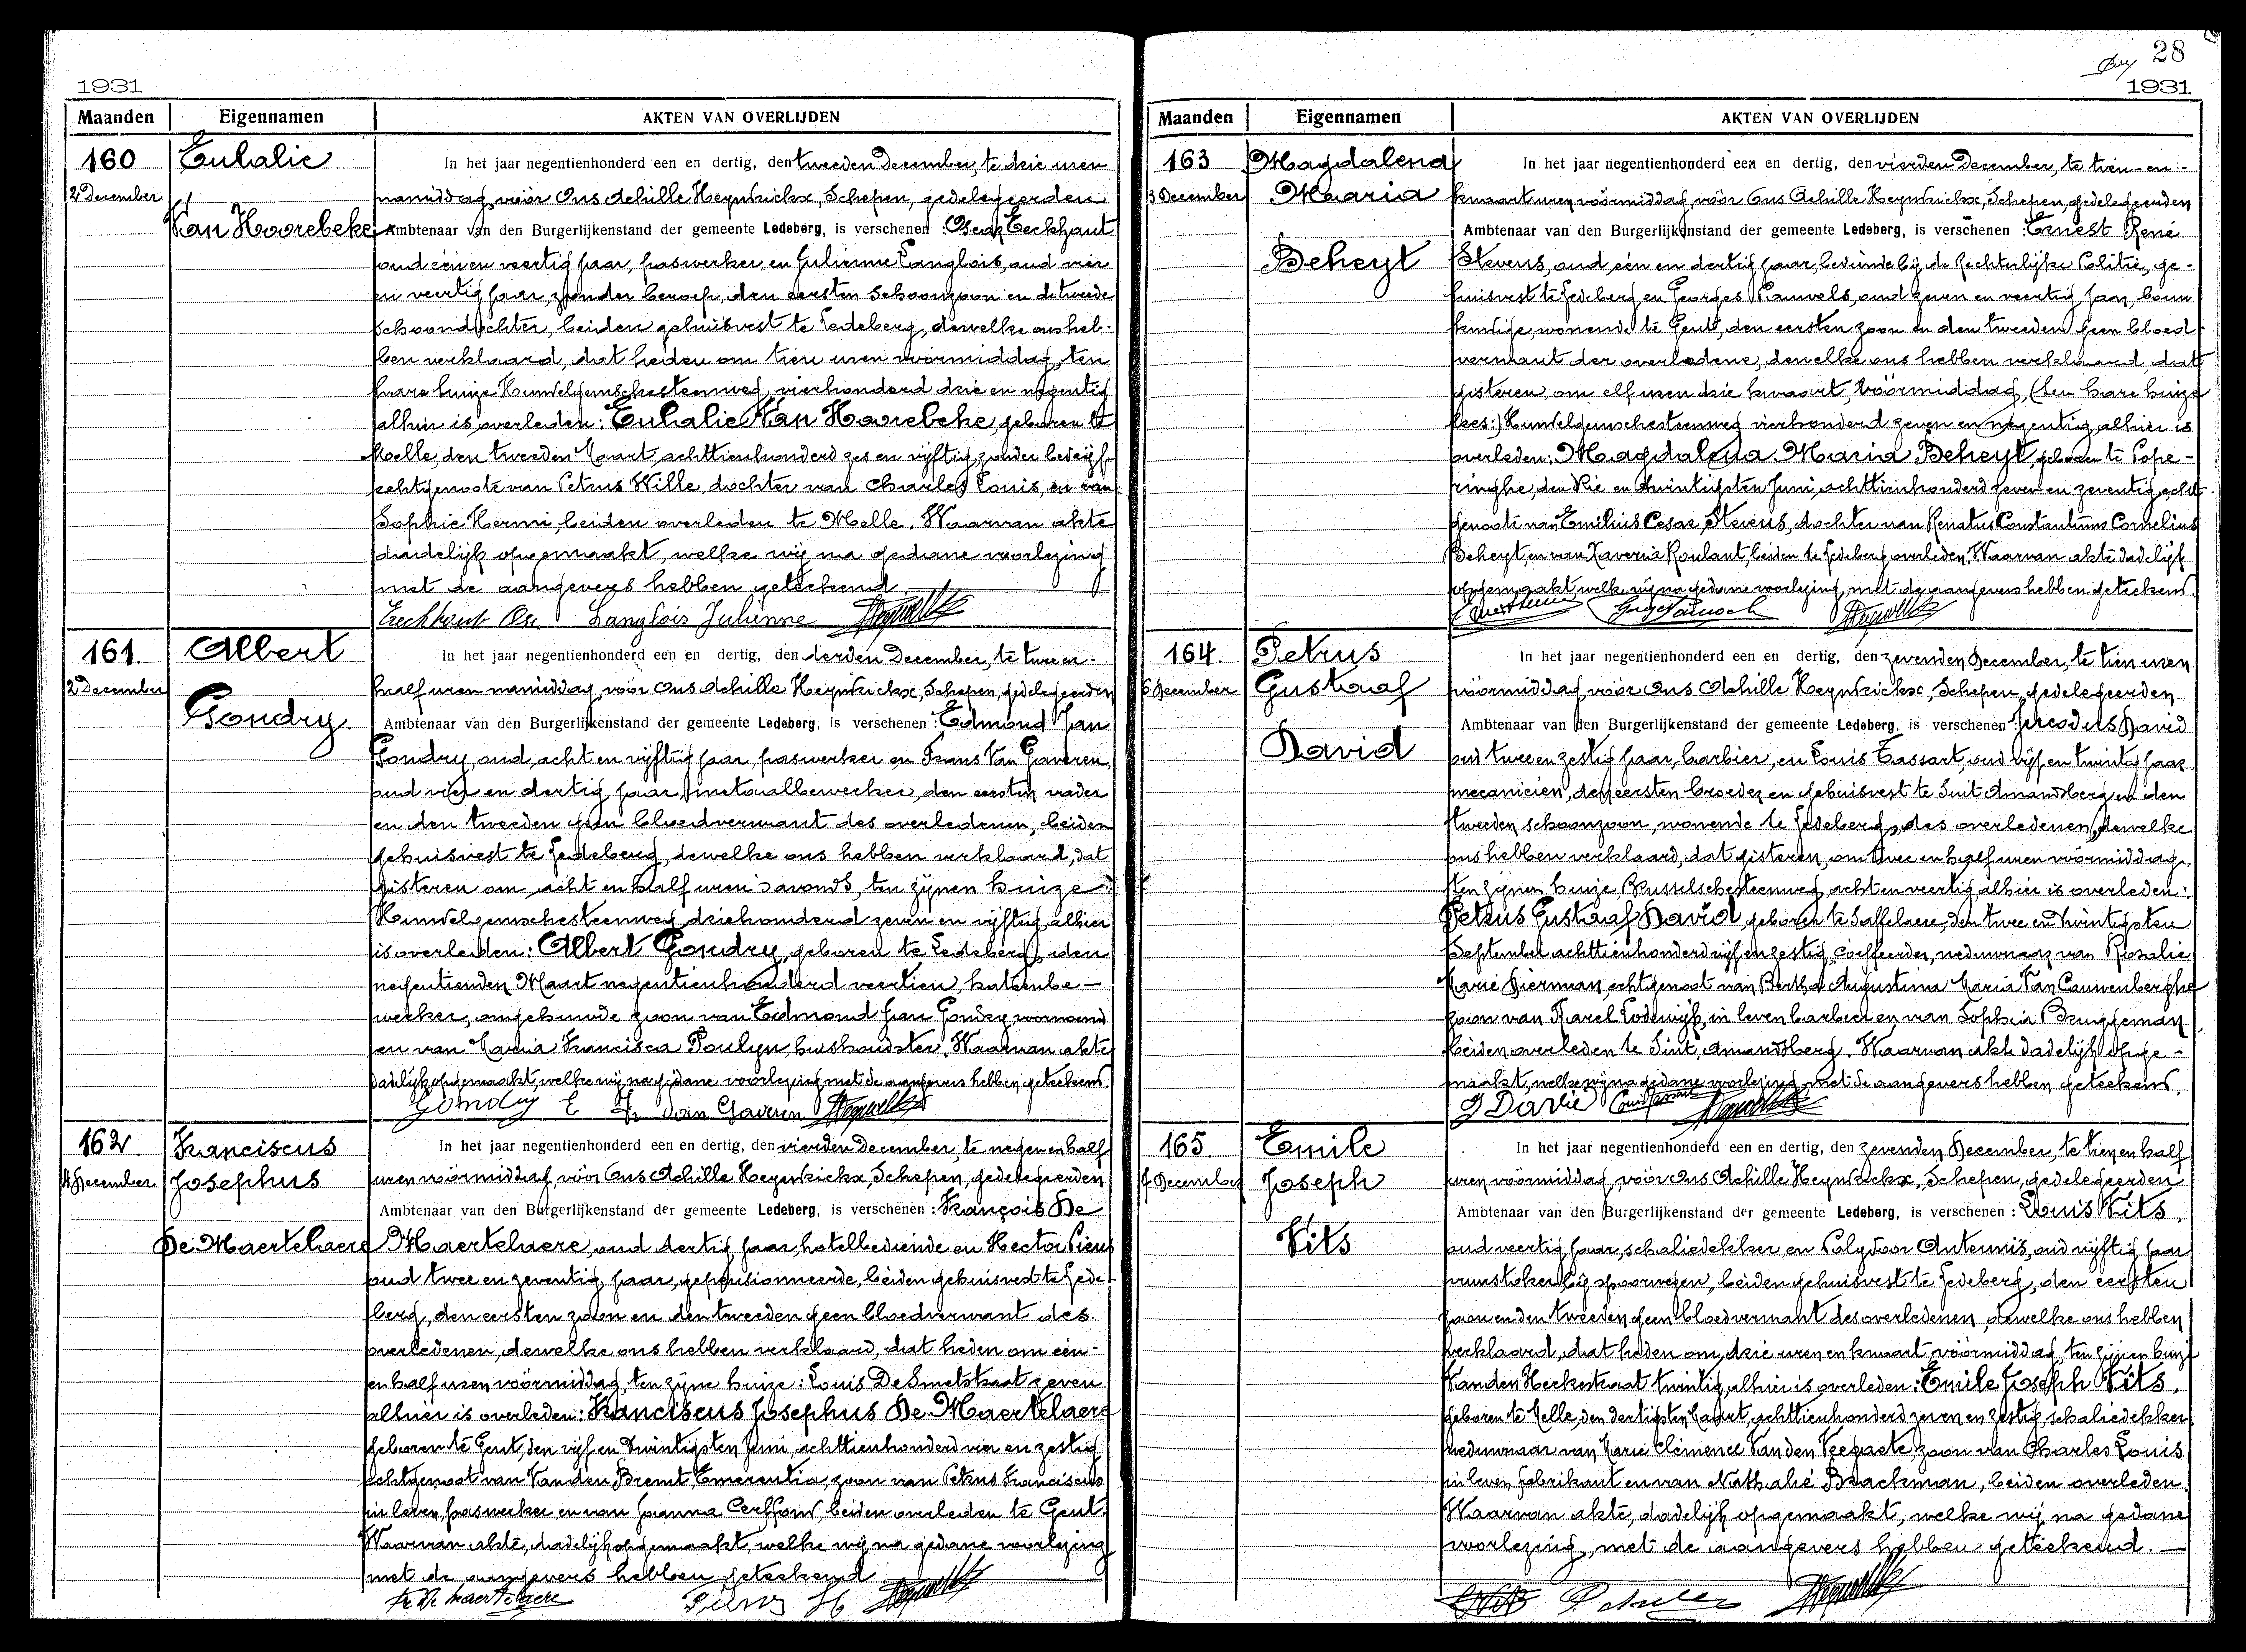 1931
Maanden Eigennamen AKTEN VAN OVERLIJDEN
160
2 December
Eulalie
Van Hoorebeke
In het jaar negentienhonderd een en dertig, den tweeden December, te drie uren
namiddag, vóór Ons Achille Heynkickx, Schepen, gedelegeerden
Ambtenaar van den Burgerlijkenstand der gemeente Ledeberg, is verschenen : Oscar Eeckhaut
oud één en veertig jaar, paswerker, en Julienne Langlois, oud vier
en veertig jaar, zonder beroep, den eersten schoonzoon en de tweede
schoondochter, beiden gehuisvest te Ledeberg, dewelke ons heb-
ben verklaard, dat heden om tien uren vóórmiddag, ten
hare huize Hundelgemschesteenweg, vierhonderd drie en negentig
alhier is overleden : Eulalie Van Hoorebeke, geboren te
Melle, den tweeden Maart achttienhonderd zes en vijftig, zonder bedrijf
echtgenoote van Petrus Wille, dochter van Charles Louis, en van
Sophie Hermi, beiden overleden te Melle. Waarvan akte
dadelijk opgemaakt, welke wij na gedane voorlezing
met de aangevers hebben geteekend
Eeckhaut Osc Langlois Julienne
161.
2 December
Albert
Gondry
In het jaar negentienhonderd een en dertig, den derden December, te twee en-
half uren namiddag, vóór Ons Achille Heynkickx, Schepen, gedelegeerden
Ambtenaar van den Burgerlijkenstand der gemeente Ledeberg, is verschenen : Edmond Jan
Gondry, oud acht en vijftig jaar, paswerker en Frans Van Gaveren,
oud vier en dertig jaar, metaalbewerker, den eersten vader
en den tweeden geen bloedverwant des overledenen, beiden
gehuisvest te Ledeberg, dewelke ons hebben verklaard, dat
gisteren om acht en half uren 's avonds, ten zijnen huize
Hundelgemschesteenweg driehonderd zeven en vijftig, alhier
is overleden : Albert Gondry, geboren te Ledeberg, den
negentienden Maart negentienhonderd veertien, katoenbe-
werker, ongehuwde zoon van Edmond Jan Gondry voornoemd
en van Maria Francisca Poulyn, huishoudster. Waarvan akte
dadelijk opgemaakt, welke wij na gedane voorlezing met de aangevers hebben geteekend.
Gondry E Fr Van Gaveren
162
4 December
Franciscus
Josephus
De Maertelaere
In het jaar negentienhonderd een en dertig, den vierden December, te negen en half
uren vóórmiddag, vóór Ons Achille Heynkickx, Schepen, gedelegeerden
Ambtenaar van den Burgerlijkenstand der gemeente Ledeberg, is verschenen : François De
Maertelaere, oud dertig jaar, hotelbediende en Hector Piens
oud twee en zeventig jaar, gepensionneerde, beiden gehuisvest te Lede-
berg, den eersten zoon en den tweeden geen bloedverwant des
overledenen, dewelke ons hebben verklaard, dat heden om één-
en half uren vóórmiddag, ten zijne huize : Louis De Smetstraat zeven
alhier is overleden : Franciscus Josephus De Maertelaere
geboren te Gent, den vijf en twintigsten Juni, achttienhonderd vier en zestig
echtgenoot van Vanden Bremt Emerentia, zoon van Petrus Franciscus
in leven paswerker, en van Joanna Ceuffons, beiden overleden te Gent.
Waarvan akte, dadelijk opgemaakt, welke wij na gedane voorlezing
met de aangevers hebben geteekend
Fr De Maertelaere Piens H
28
1931
Maanden Eigennamen AKTEN VAN OVERLIJDEN
163
3 December
Magdalena
Maria
Beheyt
In het jaar negentienhonderd een en dertig, den vierden December, te tien en-
kwaart uren vóórmiddag, vóór Ons Achille Heynkickx, Schepen, gedelegeerden
Ambtenaar van den Burgerlijkenstand der gemeente Ledeberg, is verschenen : Ernest René
Stevens, oud één en dertig jaar, bediende bij de Rechterlijke Politie, ge-
huisvest te Ledeberg en Georges Pauwels, oud zeven en veertig jaar, bouw
kundige, wonende te Gent, den eersten zoon en den tweeden geen bloed
verwant der overledene, dewelke ons hebben verklaard, dat
gisteren om elf uren drie kwaart vóórmiddag, (ten hare huize
lees:) Hundelgemschesteenweg vierhonderd zeven en negentig, alhier is
overleden : Magdalena Maria Beheyt, geboren te Pope-
ringhe, den drie en twintigsten Juni, achttienhonderd zeven en zeventig, echt-
genoote van Emilius Cesar Stevens, dochter van Renatus Constantinus Cornelius
Beheyt, en van Xaveria Roulant, beiden te Ledeberg overleden. Waarvan akte dadelijk
opgemaakt, welke wij na gedane voorlezing, met de aangevers hebben geteekend.
164.
6 December
Petrus
Gustaaf
David
In het jaar negentienhonderd een en dertig, den zevenden December, te tien uren
vóórmiddag, vóór Ons Achille Heynkickx, Schepen, gedelegeerden
Ambtenaar van den Burgerlijkenstand der gemeente Ledeberg, is verschenen : David
oud twee en zestig jaar, barbier, en Louis Cassart, oud vijf en twintig jaar
mecanicien, den eersten broeder en gehuisvest te Sint Amandsberg en den
tweeden schoonzoon, wonende te Ledeberg, des overledenen, dewelke
ons hebben verklaard, dat gisteren, om twee en half uren vóórmiddag,
ten zijnen huize, Brusselschesteenweg, acht en veertig, alhier is overleden :
Petrus Gustaaf David, geboren te Saffelaere, den twee en twintigsten
September achttienhonderd vijf en zestig, coiffeerder, weduwnaar van Rosalie
Marie Bierman, echtgenoot van Bertha Augustina Maria Van Cauwenberghe
zoon van Karel Lodewijk, in leven barbier en van Sophia Bruggeman
beiden overleden te Sint Amandsberg. Waarvan akte dadelijk opge-
maakt, welke wij na gedane voorlezing met de aangevers hebben geteekend
165.
7 December
Emile
Joseph
Vits
In het jaar negentienhonderd een en dertig, den zevenden December, te tien en half
uren vóórmiddag, vóór Ons Achille Heynkickx, Schepen, gedelegeerden
Ambtenaar van den Burgerlijkenstand der gemeente Ledeberg, is verschenen : Louis Vits,
oud veertig jaar, schaliedekker en Polydoor Anteunis, oud vijftig jaar
vuurstoker bij spoorwegen, beiden gehuisvest te Ledeberg, den eersten
zoon en den tweeden geen bloedverwant des overledenen, dewelke ons hebben
verklaard, dat heden om drie uren en kwaart vóórmiddag, ten zijnen huize
Vanden Heckestraat twintig, alhier is overleden : Emile Joseph Vits,
geboren te Melle, den dertigsten Maart, achttienhonderd zeven en zestig, schaliedekker
weduwnaar van Marie Clémence Van den Veegaete, zoon van Charles Louis
in leven fabrikant en van Nathalie Braeckman, beiden overleden.
Waarvan akte, dadelijk opgemaakt, welke wij na gedane
voorlezing, met de aangevers hebben geteekend.